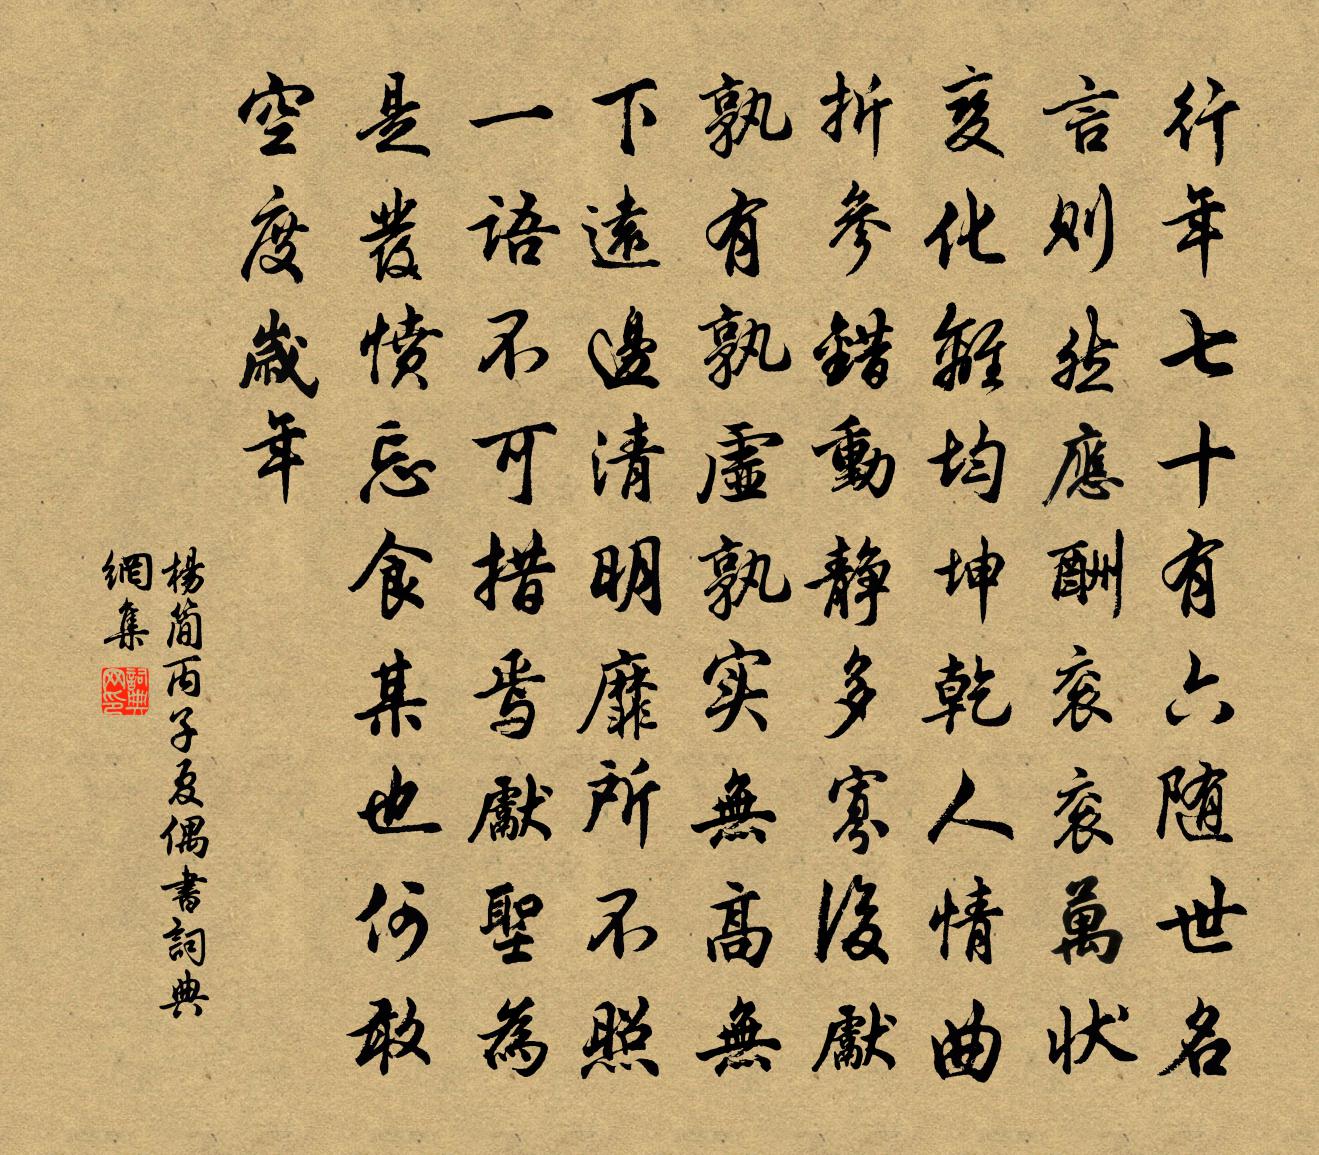 行年七十有六随世名
言则然應酬衮衮萬状
變化雜均坤乾人情曲
折參錯動静多寡後獻
孰有孰虚孰实無高無
下遠邊清明靡所不照
一語不可措焉獻聖為
是發憤忘食某也何敢
空度歲年
楊簡丙子夏偶書詞典
網集
詞典
网印